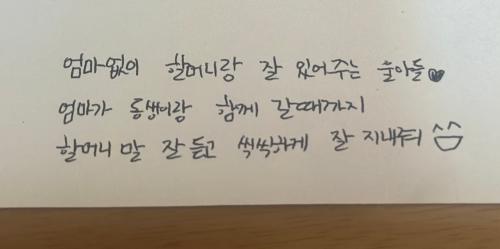 엄마없이 할머니랑 잘 있어주는 울아들♥
엄마가 동생이랑 함께 갈때까지
할머니 말 잘 듣고 씩씩하게 잘 지내줘 ^^